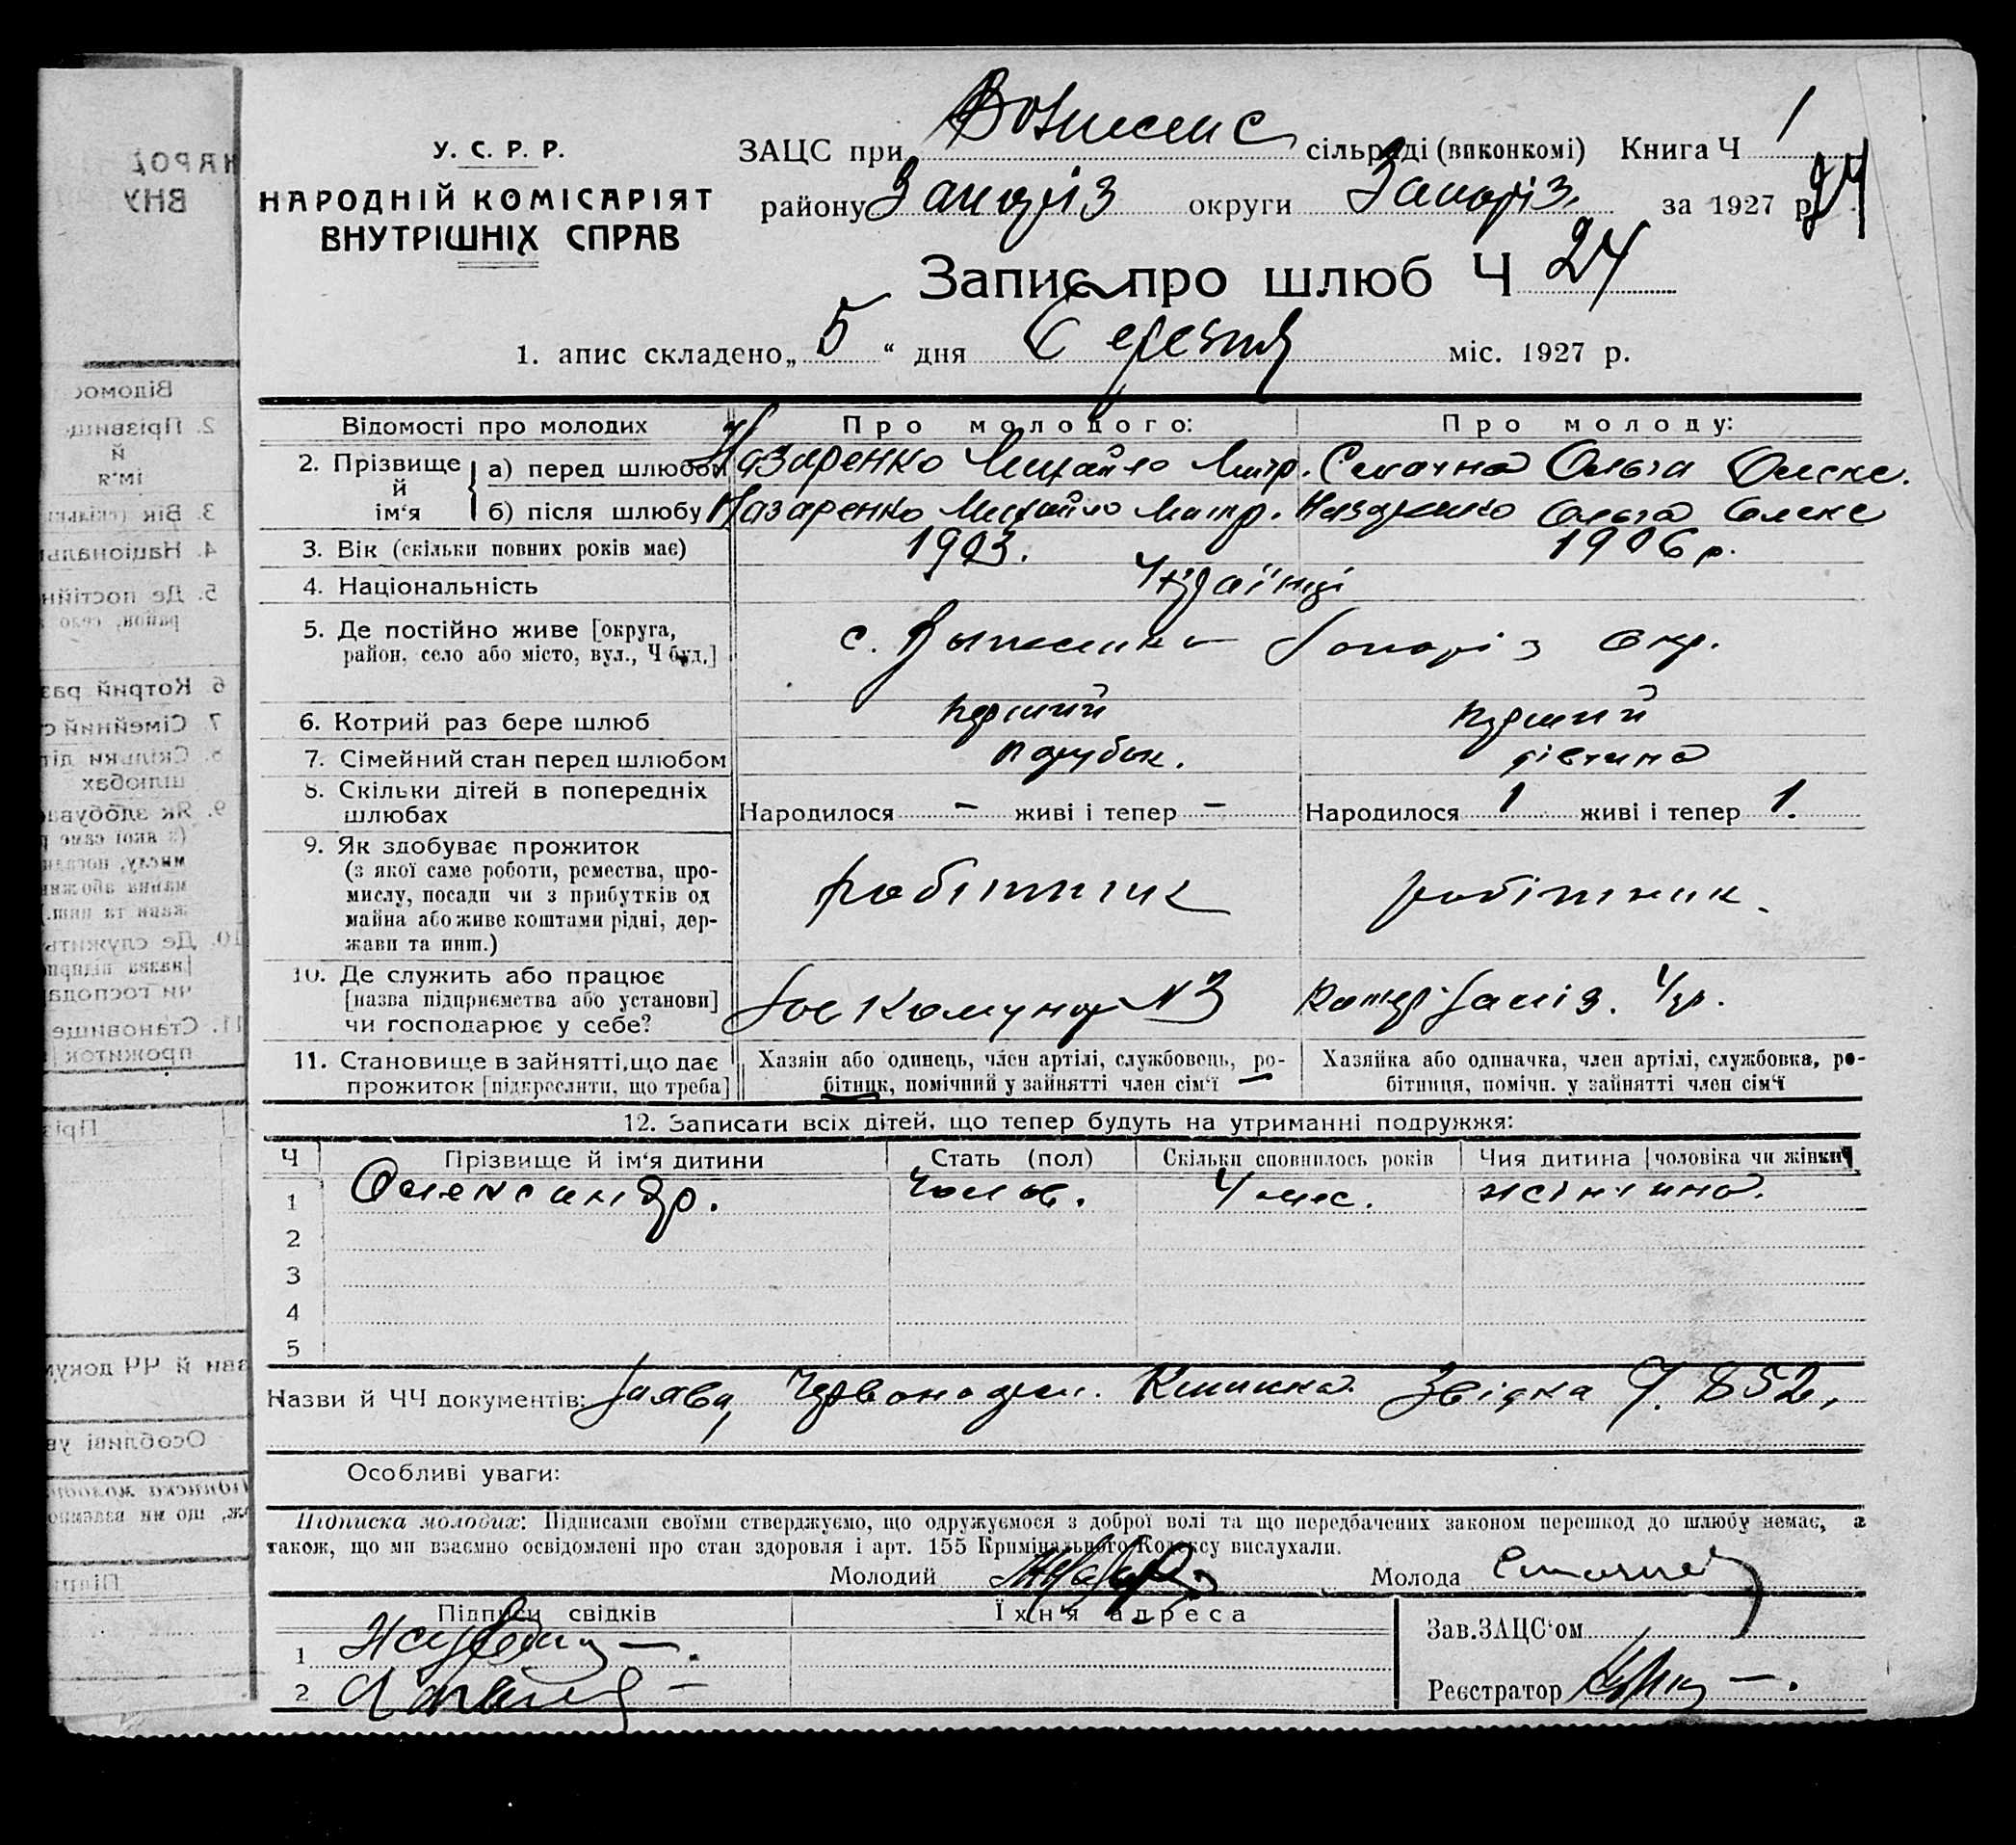 У. С. Р. Р.
НАРОДНІЙ КОМІСАРІЯТ
ВНУТРІШНІХ СПРАВ
ЗАЦС при Вознесенс сільраді (виконкомі) Книга Ч 1
району Запоріз округи Запоріз. за 1927 р. 24
Запис про шлюб Ч 24
1. апис складено „ 5 “ дня Серезня міс. 1927 р.
Відомості про молодих
Про молодого:
Про молоду:
2. Прізвище й ім‘я
а) перед шлюбом Назаренко Михайло Митр. Ольга Олекс.
б) після шлюбу Назаренко Михайло Митр. Назаренко Ольга Олекс
3. Вік (скільки повних років має) 1903. 1906 р.
4. Національність Українці
5. Де постійно живе [округа,
район, село або місто, вул., Ч буд.] с. Запоріз Окр.
6. Котрий раз бере шлюб перший перший
7. Сімейний стан перед шлюбом парубок. дівчина
8. Скільки дітей в попередніх
шлюбах Народилося – живі і тепер – Народилося 1 живі і тепер 1.
9. Як здобуває прожиток
(з якої саме роботи, ремества, про-
мислу, посади чи з прибутків од
майна або живе коштами рідні, дер-
жави та инш.)
робітник робітник.
10. Де служить або працює
[назва підприємства або установи]
чи господарює у себе?
Комунар N 3
11. Становище в зайнятті, що дає
прожиток [підкреслити, що треба]
Хазяін або одинець, член артілі, службовець, ро-
бітник, помічний у зайнятті член сім‘ї
Хазяйка або одиначка, член артілі, службовка, ро-
бітниця, помічн. у зайнятті член сім‘ї
12. Записати всіх дітей, що тепер будуть на утриманні подружжя:
Ч Прізвище й ім‘я дитини Стать (пол) Скільки сповнилось років Чия дитина [чоловіка чи жінки]
1 Олександр. Чолов. 4 мес. жінчина.
2
3
4
5
Назви й ЧЧ документів: Заява, Червоноарм. Книжка. Звідка Ч. 852,
Особливі уваги:
Підписка молодих: Підписами своїми стверджуємо, що одружуємося з доброї волі та що передбачених законом перешкод до шлюбу немає, а
також, що ми взаємно освідомлені про стан здоровля і арт. 155 Кримінального Кодексу вислухали.
Молодий Молода
Підписи свідків
Їхня адреса
Зав.ЗАЦС‘ом
1
2
Реєстратор